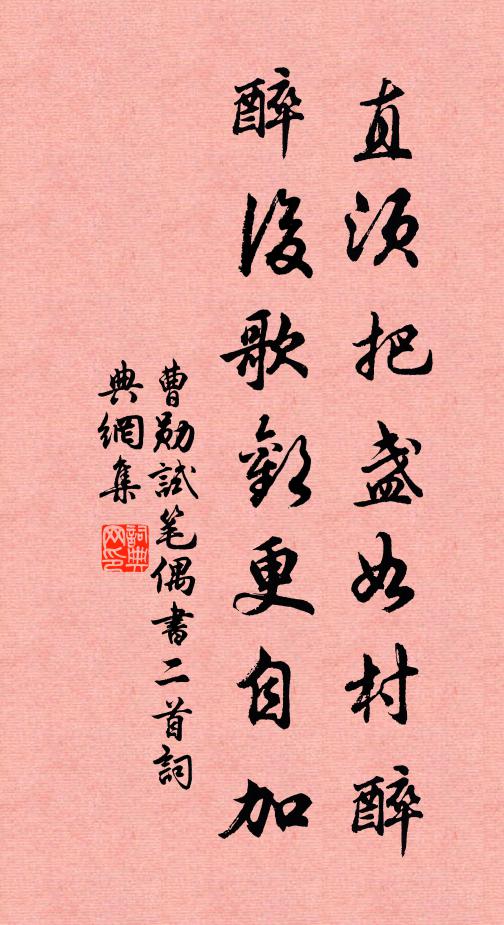 直须把盏如村醉
醉後歌欢更自加
曹勋試笔偶書二首詞
典網集
詞典网印